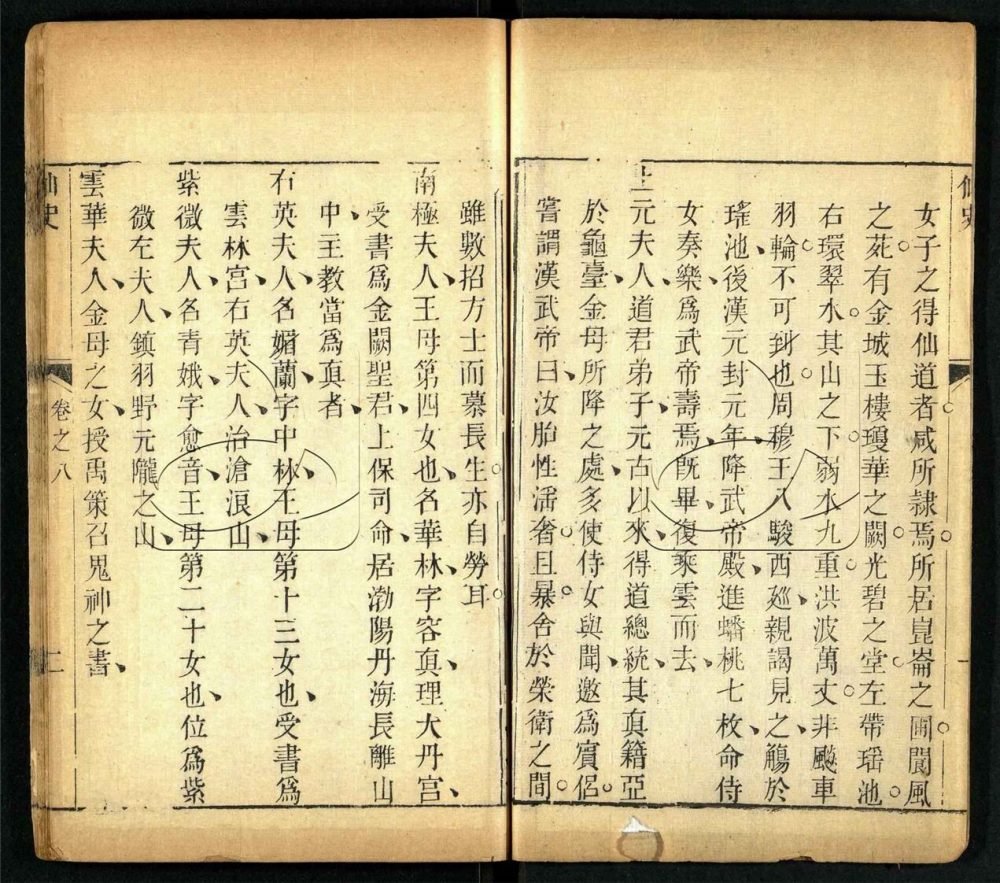 女子之得仙道者咸所隸焉所居崑崙之圃閬風
之苑有金城玉樓瓊華之闕光碧之堂左帶瑶池
右環翠水其山之下弱水九重洪波萬丈非飈車
羽輪不可到也周穆王八駿西廵親謁見之觴於
瑤池後漢元封元年降武帝殿進蟠桃七枚命侍
女奏樂爲武帝壽焉旣畢復乘雲而去
上元夫人道君弟子元古以來得道總統其真籍亞
於龜臺金母所降之處多使侍女與聞邀爲賓侶
嘗謂漢武帝曰汝胎性淫奢且暴舍於榮衛之間
一
雖數招方士而慕長生亦自勞耳
南極夫人王母第四女也名華林字容真理大丹宫
受書爲金闕聖君上保司命居渤陽丹海長離山
中主教當爲真者
右英夫人名媚蘭字中林王母第十三女也受書爲
雲林宫右英夫人治滄浪山
紫微夫人名青娥字愈音王母第二十女也位爲紫
微左夫人鎮羽野元隴之山
雲華夫人金母之女授禹策召鬼神之書
仙史
卷之八
二